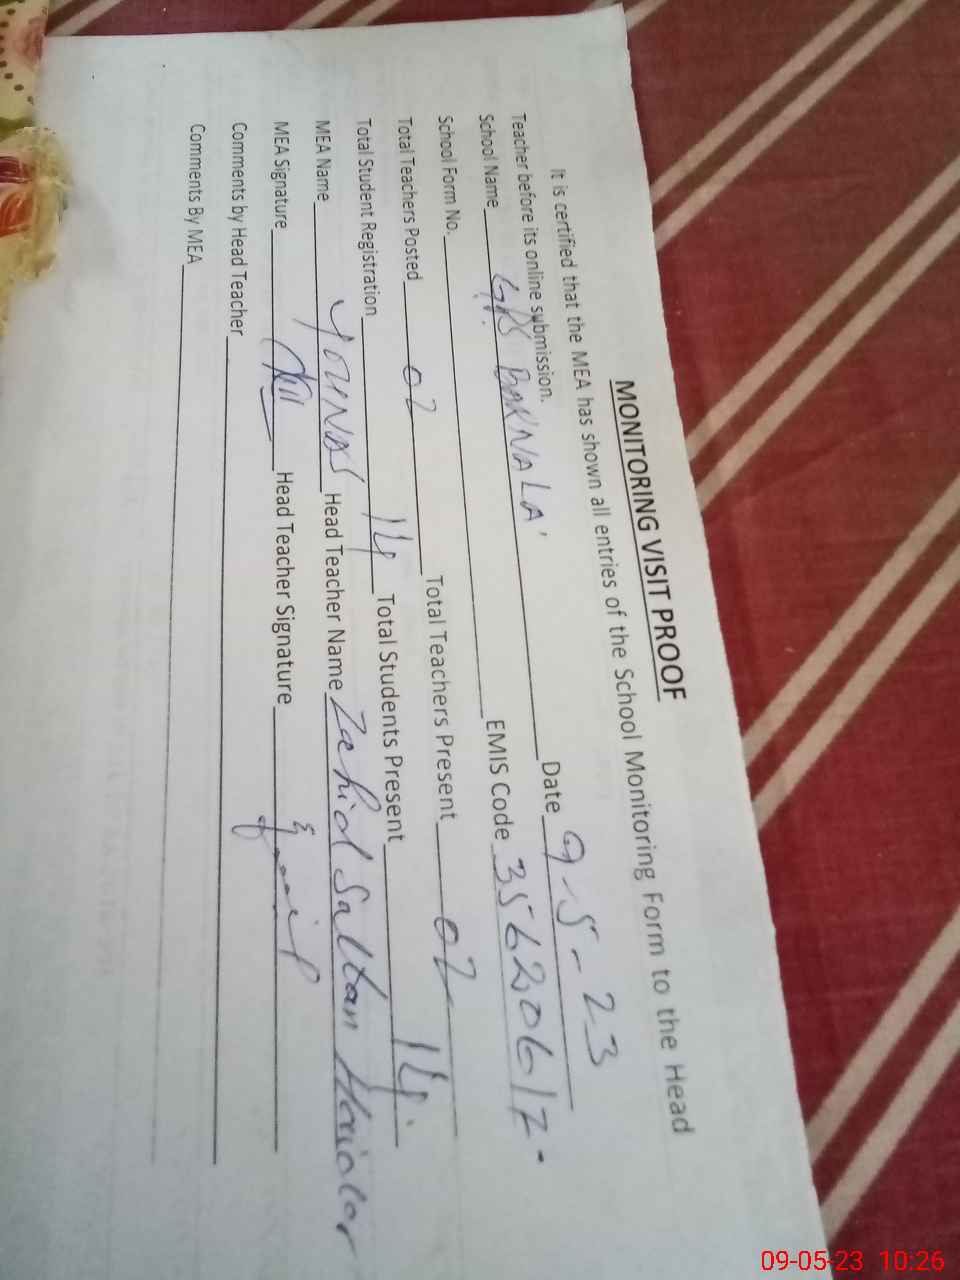 MONITORING VISIT PROOF
It is certified that the MEA has shown all entries of the School Monitoring Form to the Head
Teacher before its online submission.
School Name GPS BARNALA Date 9-5-23
School Form No. EMIS Code 35620617
Total Teachers Posted 02 Total Teachers Present 02
Total Student Registration 14 Total Students Present 14
MEA Name YOUNAS Head Teacher Name Zahid Saltan
MEA Signature Head Teacher Signature
Comments by Head Teacher
Comments By MEA
09-05-23 10:26